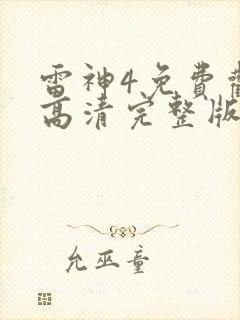 雷神4免费
高清完整版
允巫童